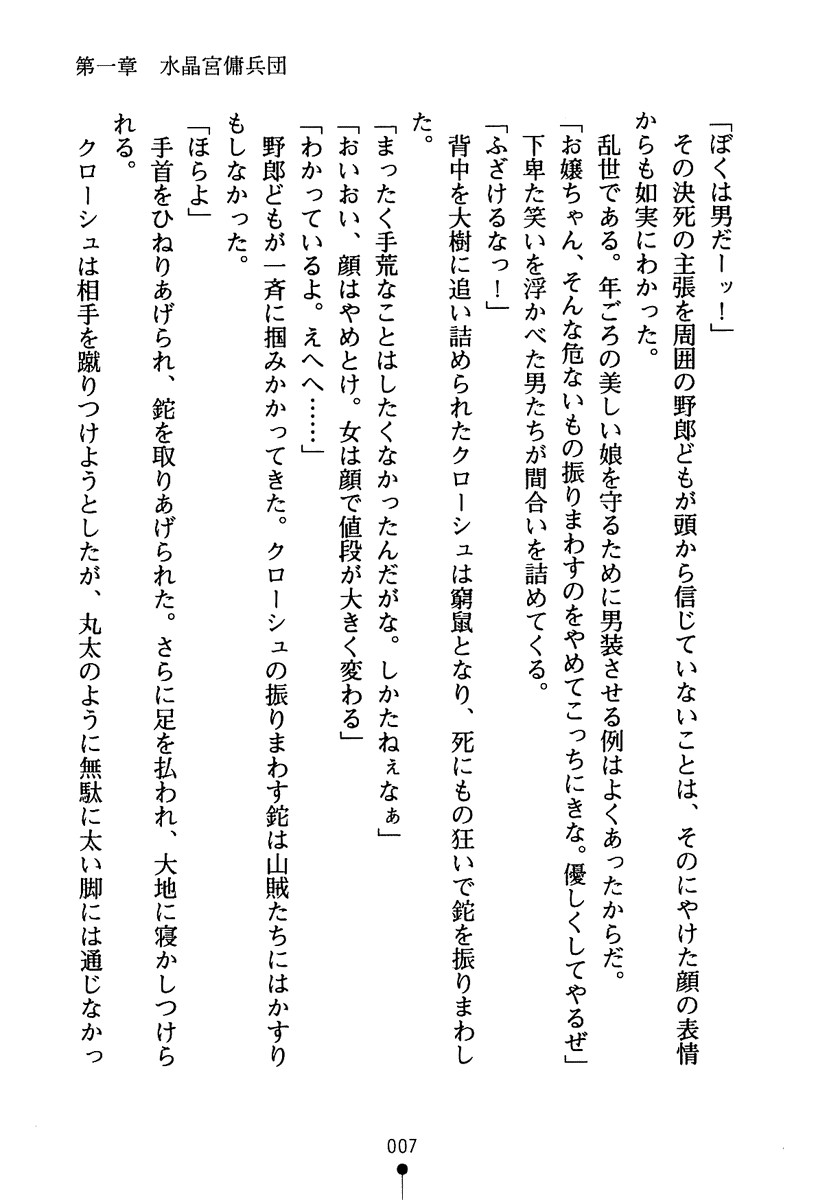 第一章　水晶宮傭兵団
「ぼくは男だーッ！」
　その決死の主張を周囲の野郎どもが頭から信じていないことは、そのにやけた顔の表情
からも如実にわかった。
　乱世である。年ごろの美しい娘を守るために男装させる例はよくあったからだ。
「お嬢ちゃん、そんな危ないもの振りまわすのをやめてこっちにきな。優しくしてやるぜ」
　下卑た笑いを浮かべた男たちが間合いを詰めてくる。
「ふざけるなっ！」
　背中を大樹に追い詰められたクローシュは窮鼠となり、死にもの狂いで鉈を振りまわし
た。
「まったく手荒なことはしたくなかったんだがな。しかたねぇなぁ」
「おいおい、顔はやめとけ。女は顔で値段が大きく変わる」
「わかっているよ。えへへ……」
　野郎どもが一斉に掴みかかってきた。クローシュの振りまわす鉈は山賊たちにはかすり
もしなかった。
「ほらよ」
　手首をひねりあげられ、鉈を取りあげられた。さらに足を払われ、大地に寝かしつけら
れる。
　クローシュは相手を蹴りつけようとしたが、丸太のように無駄に太い脚には通じなかっ
007